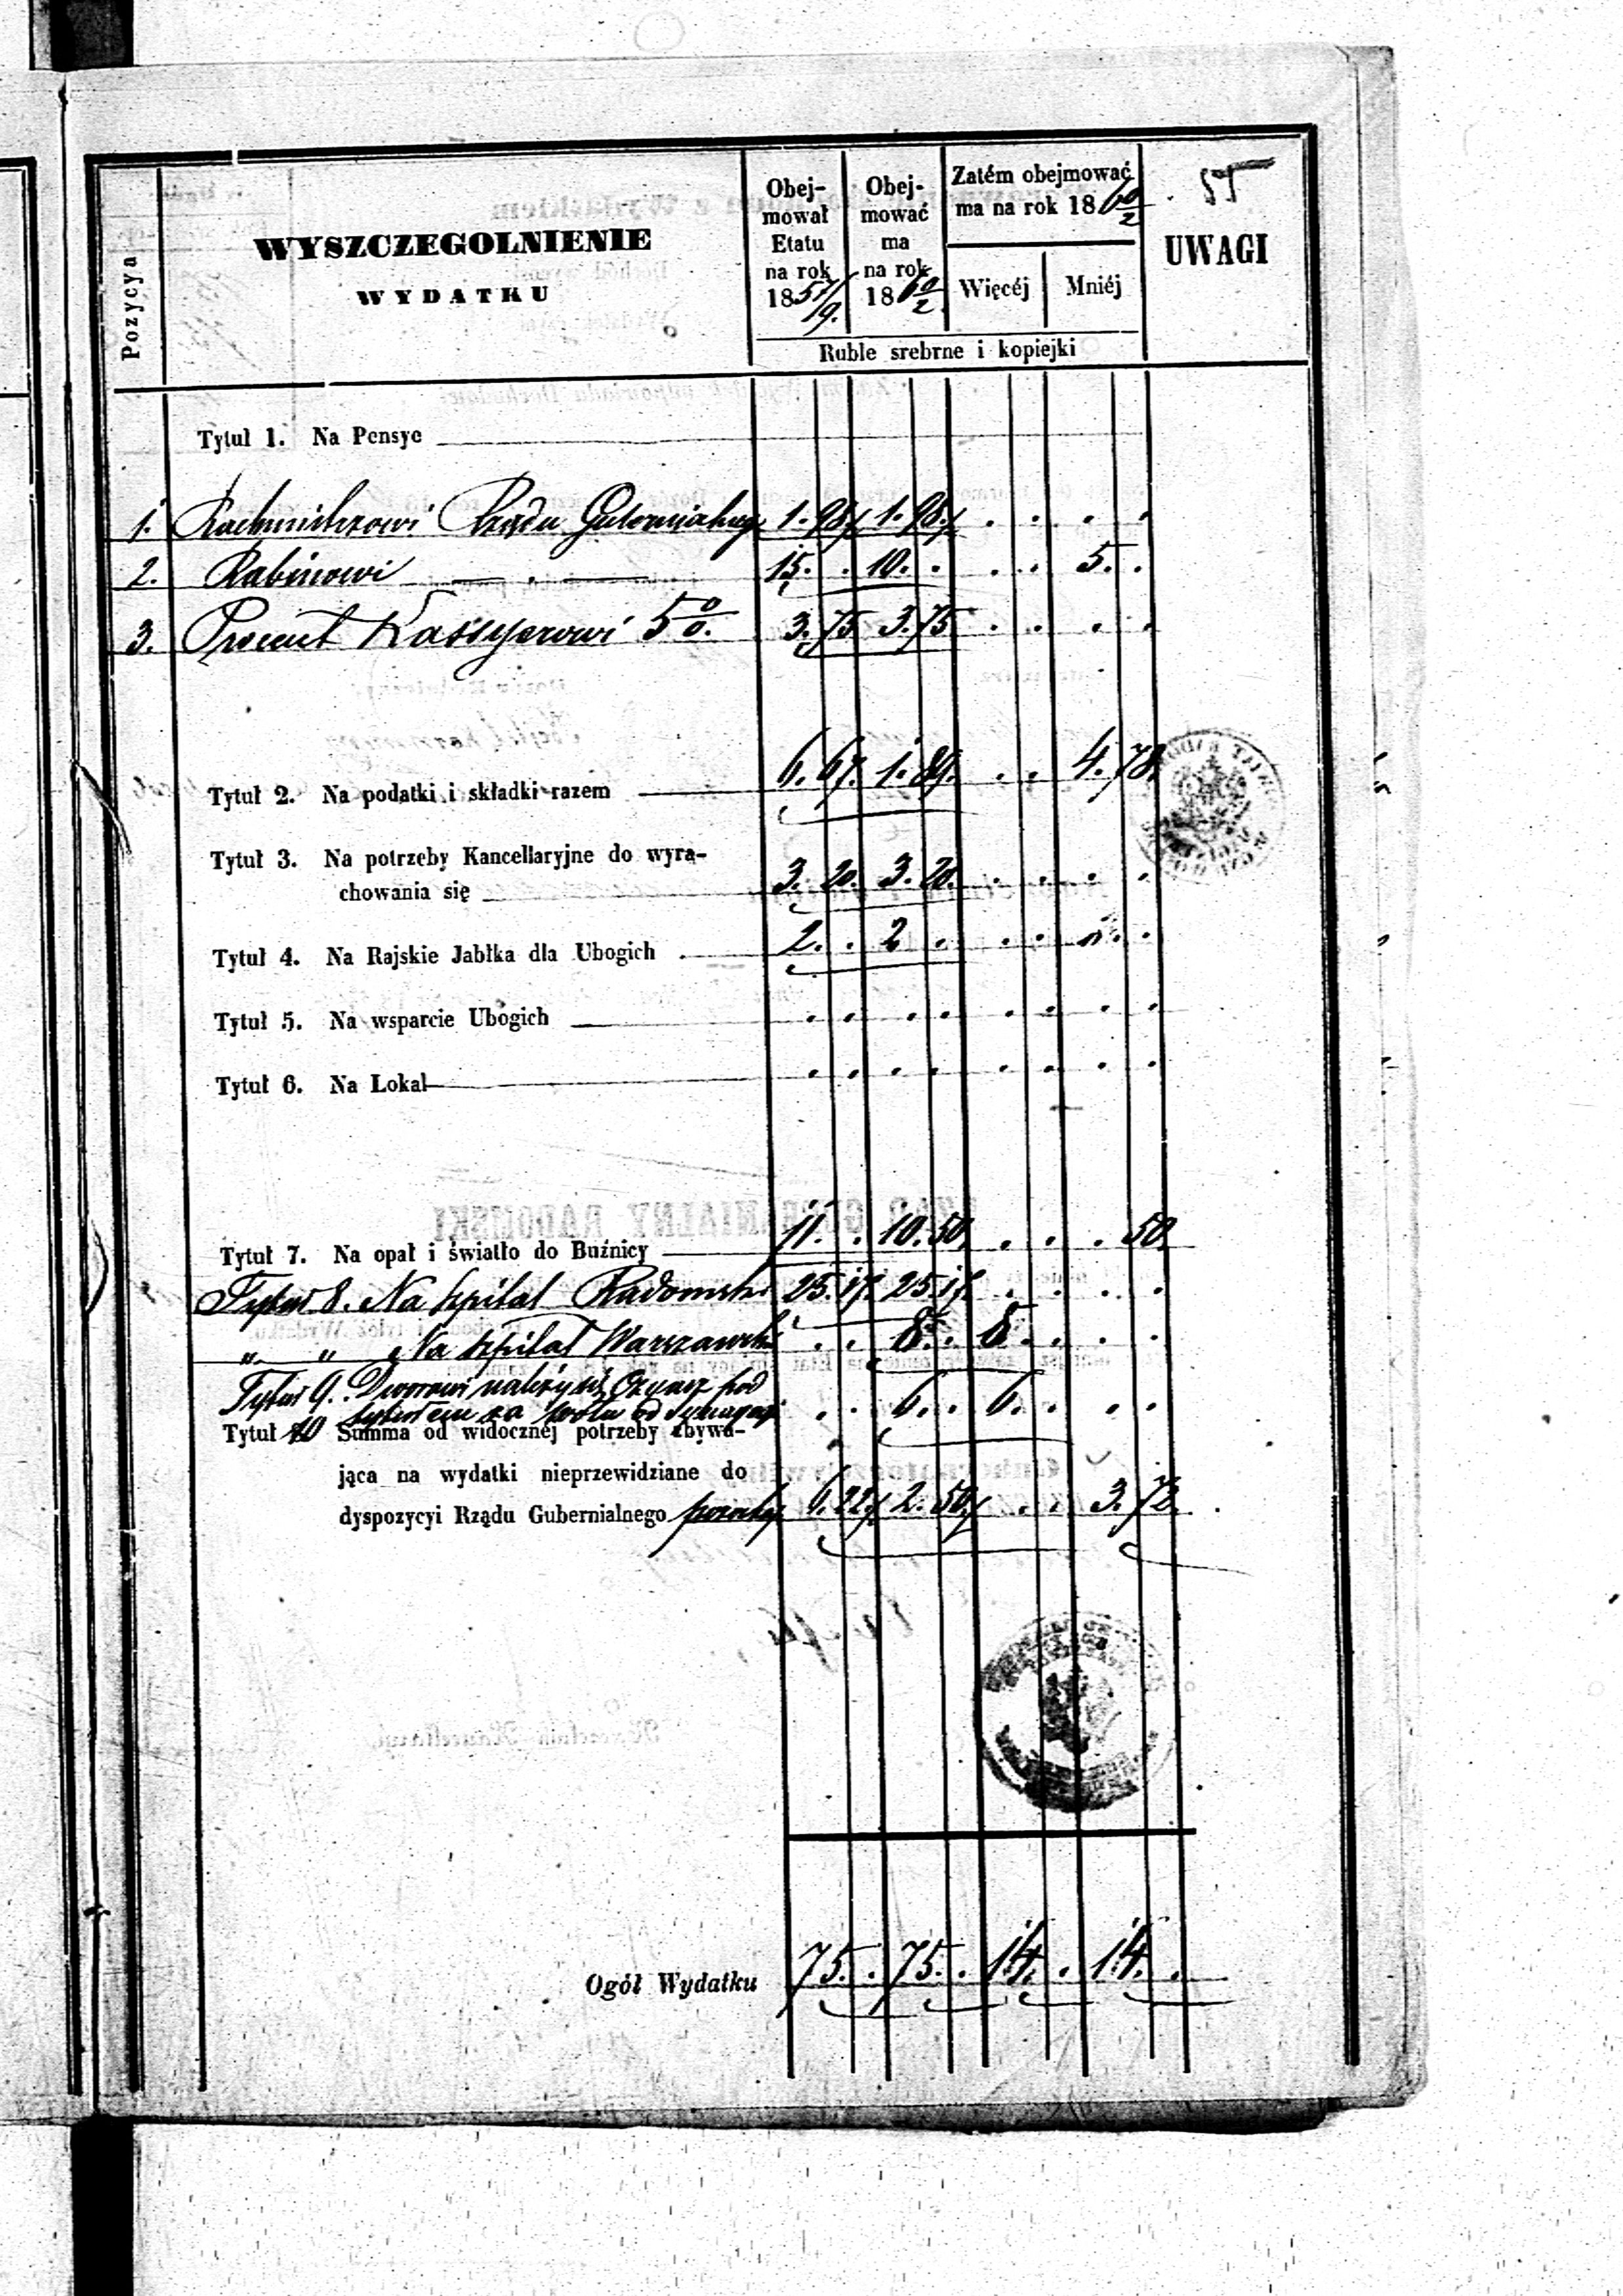 55
Pozycya
WYSZCZEGOLNIENIE
WYDATKU
Obej-
mował
Etatu
na rok
1857/9.
Obej-
mować
ma
na rok
1860/2.
Zatém obejmować
ma na rok 1860/2
Więcéj
Mniéj
UWAGI
Ruble srebrne i kopiejki
Tytuł 1. Na Pensye
1. Rachmistrzowi Rządu Gubernialnego 1. 98½ 1. 98½ . . . .
2. Rabinowi 15. . 10. . . . 5. .
3. Procent Kassyerowi 5 0/0. 3. 75 3. 75 . . . .
Tytuł 2. Na podatki i składki razem 6. 67. 1. 89. . . 4. 78.
Tytuł 3. Na potrzeby Kancellaryjne do wyra-
chowania się 3. 20. 3. 20. . . . .
Tytuł 4. Na Rajskie Jabłka dla Ubogich 2. . 2 . . . . .
Tytuł 5. Na wsparcie Ubogich . . . . . . . .
Tytuł 6. Na Lokal . . . . . . . .
RZĄD GUBERNIALNY RADOMSKI
Tytuł 7. Na opał i światło do Buźnicy 11. . 10. 50. . . . 50.
Tytuł 8. Na szpital Radomski 25. 17. 25. 17. . . . .
„ „ Na szpital Warszawski . . 8. . 8. . . .
Tytuł 9. Dworowi należny się Czynsz pod
tytułem za od Synagogi . . 6. . 6. . . .
Tytuł 10 Summa od widocznéj potrzeby zbywa-
jąca na wydatki nieprzewidziane do
dyspozycyi Rządu Gubernialnego 6. 22½ 2. 50½ . . 3. 72.
Ogół Wydatku 75. . 75. . 14. . 14. .